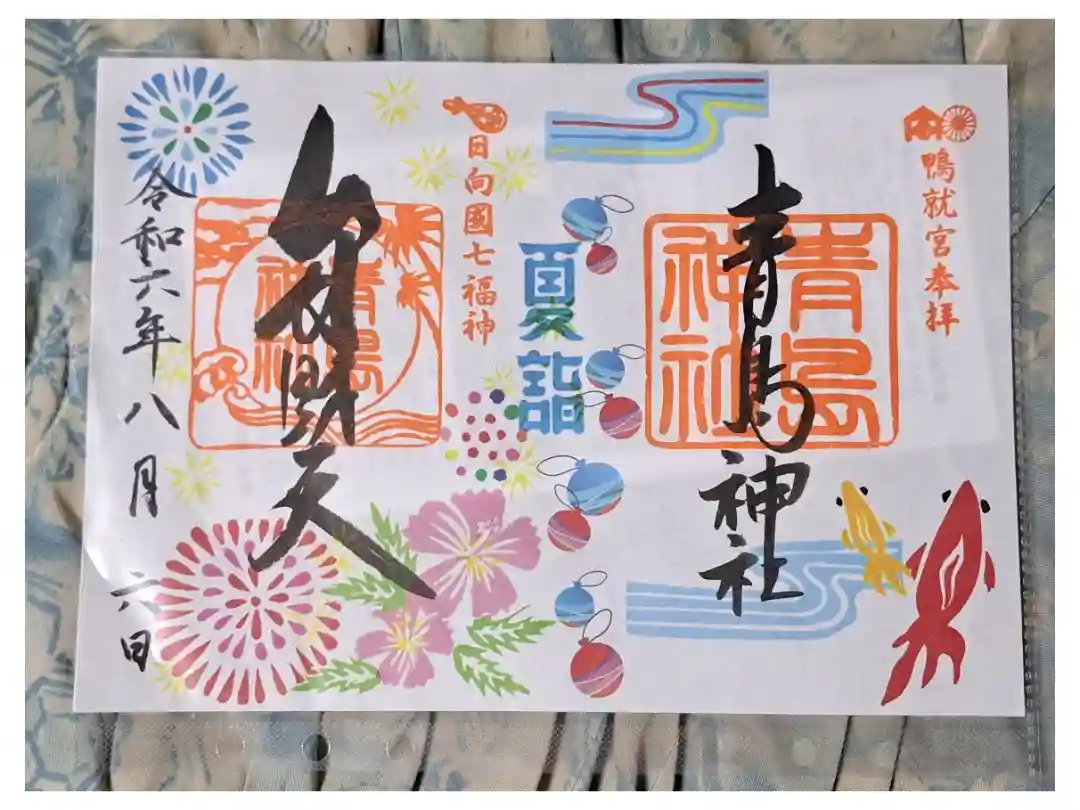 鴨就宮奉拝
青島神社
青島
神社
夏詣
日向國七福神
弁財天
青島
神社
令和六年八月六日